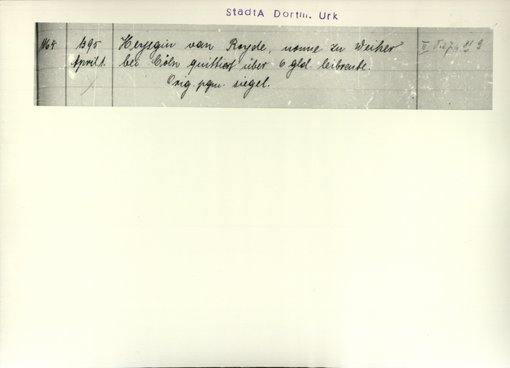 StadtA Dortm. Urk
1164 1395 Heysgin van Royde, nonne zu Weiher
April 1. bei Cöln quittiert über 6 gld. leibrente.
Orig. pgm. siegel.